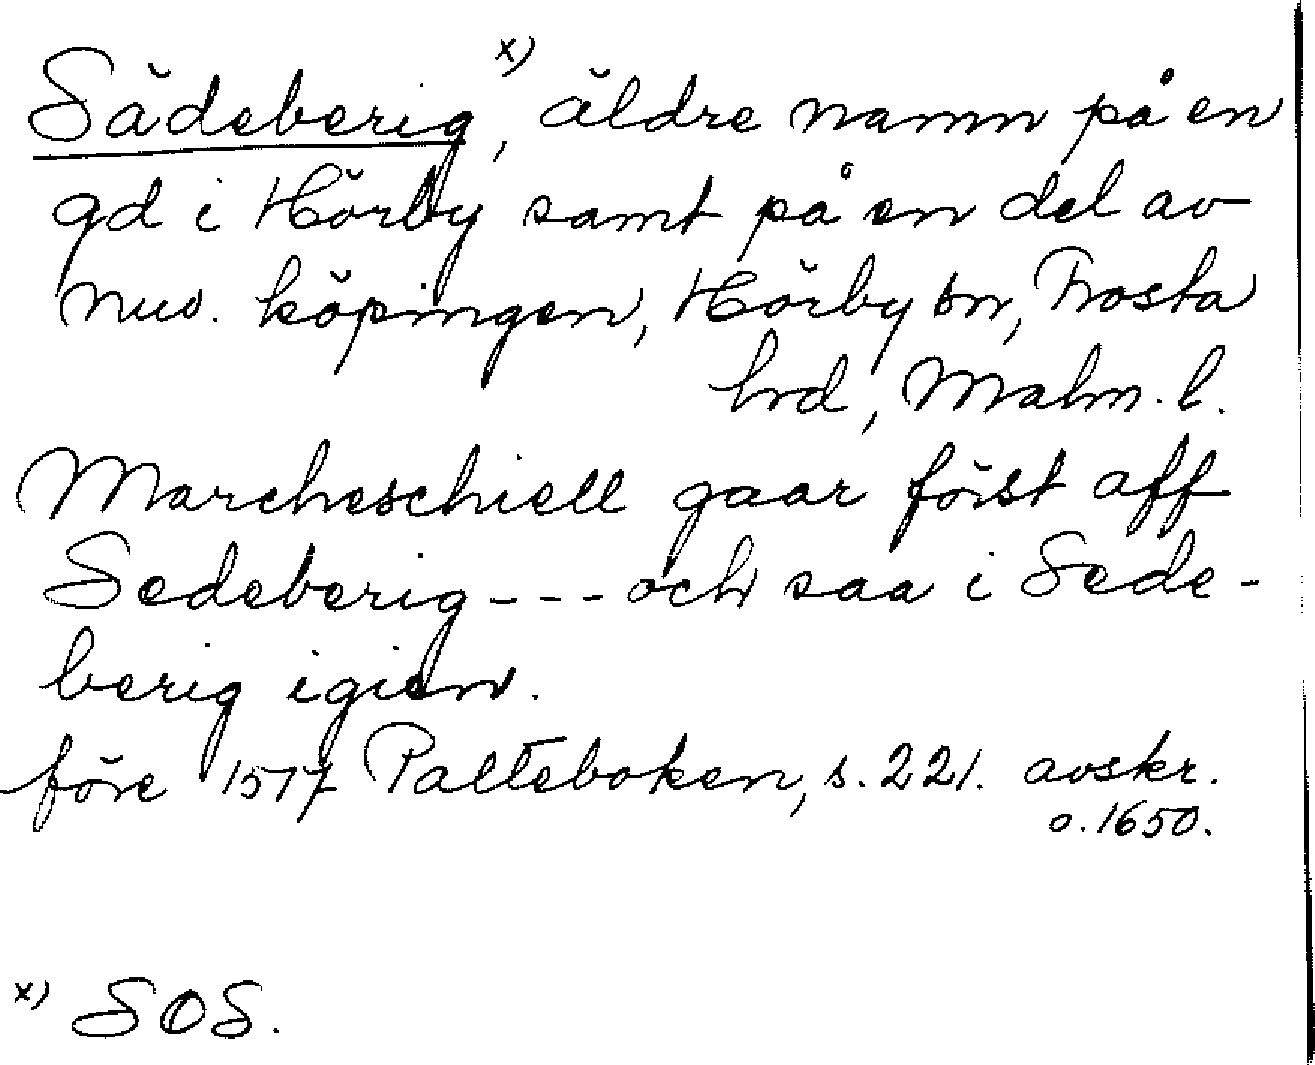 Sädeberig x), äldre namn på en
gd i Hörby samt på en del av
nuv. köpingen, Hörby sn, Frosta
hrd, Malm. l.
Marcheschiell gaar först aff
Sedeberig --- och saa i Sede-
berig igien.
före 1517 Palteboken, s. 221. avskr.
o. 1650.
x) SOS.